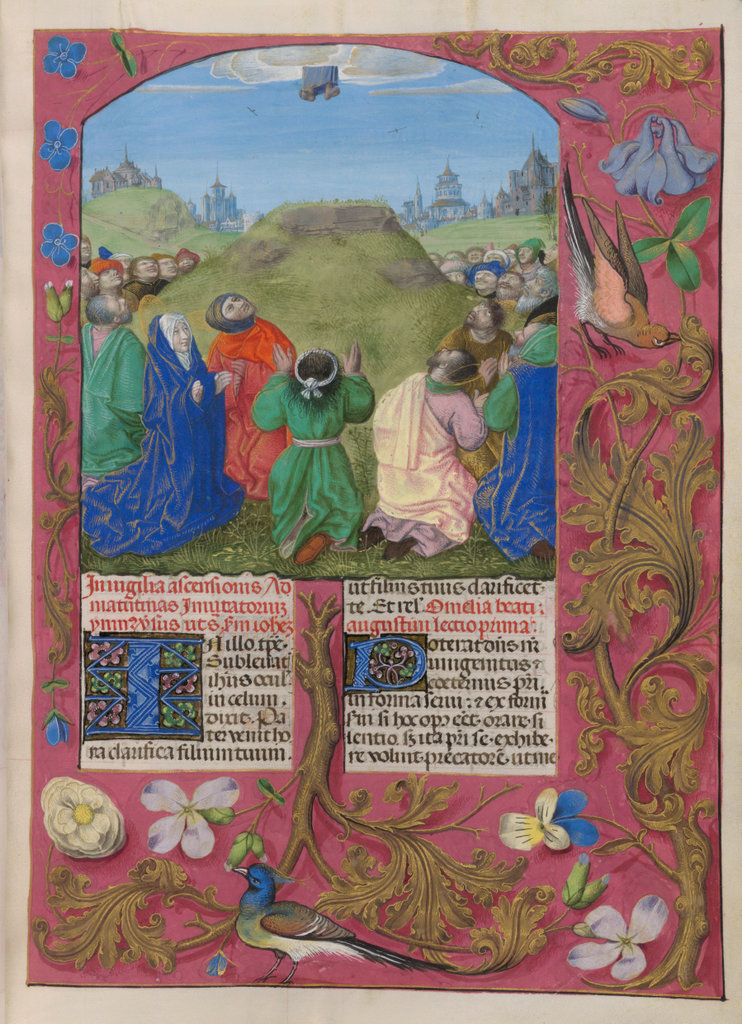 In vigilia ascensionis Ad
matutinas Inuitatorium
ymn9 v̄sus ut s. S'm iohēz
IN illo tp̄e.
Subleuat
ihūs ocul'
in celum.
dixit. Pa
ter venit ho
ra clarifica filium tuum.
ut filius tuus clarificet
te. Et rel'. Omelia beati
augustini lectio prima.
Poterat dūs nr̄
unigenitus ⁊
coeternus pr̄i
in forma serui: ⁊ ex form
serui si hoc op9 eēt. orare si
lentio. sȝ ita pr̄i se exhibe
re voluit precatorē. ut me